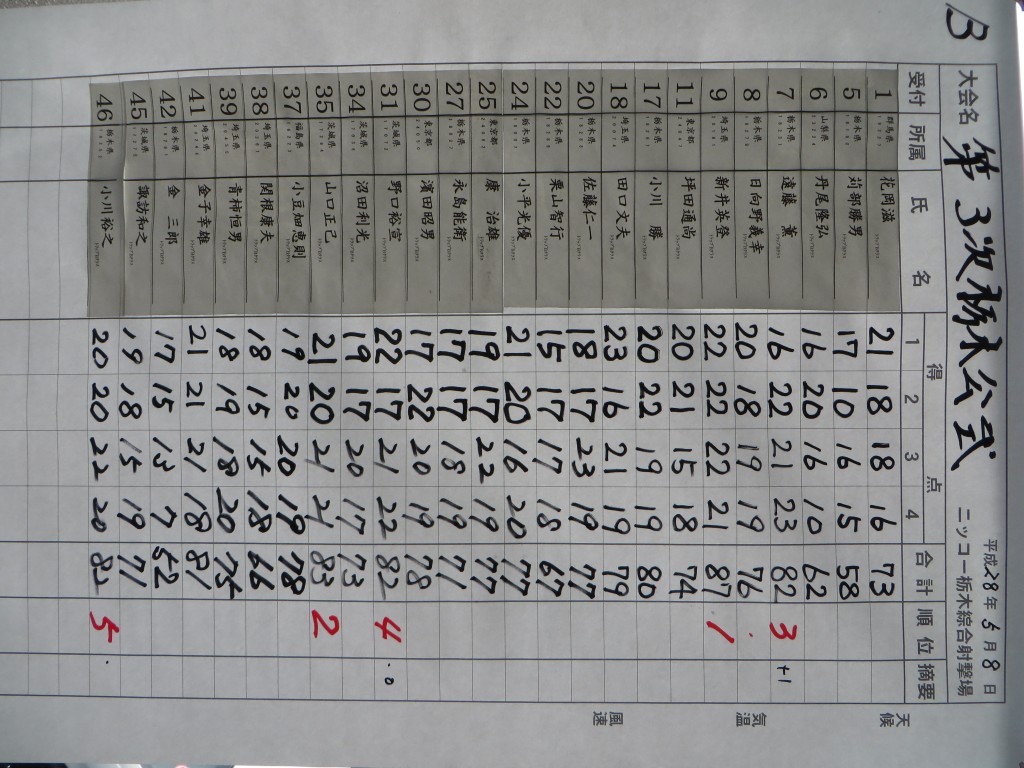 B
大会名 第3次栃木公式
平成28年5月8日
ニッコー栃木綜合射撃場
受付 所属 氏名 得点 合計 順位 摘要
1 2 3 4
1 群馬県 花岡滋 21 18 18 16 73
5 栃木県 苅部勝男 17 10 16 15 58
6 山梨県 丹尾隆弘 16 20 16 10 62
7 栃木県 遠藤 薫 16 22 21 23 82 3 +1
8 栃木県 日向野義幸 20 18 19 19 76
9 埼玉県 新井英登 22 22 22 21 87 1
11 東京都 坪田通尚 20 21 15 18 74
17 栃木県 小川 勝 20 22 19 19 80
18 埼玉県 田口文夫 23 16 21 19 79
20 栃木県 佐藤仁一 18 17 23 19 77
22 栃木県 栗山智行 15 17 17 18 67
24 栃木県 小平光優 21 20 16 20 77
25 東京都 康 治雄 19 17 22 19 77
27 栃木県 永島能衛 17 17 18 19 71
30 東京都 濱田昭男 17 22 20 19 78
31 茨城県 野口裕宣 22 17 21 22 82 4 0
34 茨城県 沼田利光 19 17 20 17 73
35 茨城県 山口正己 21 20 21 21 83 2
37 福島県 小豆畑忠則 19 20 20 19 78
38 埼玉県 関根康夫 18 15 15 18 66
39 埼玉県 青柿恒男 18 19 18 20 75
41 埼玉県 金子幸雄 21 21 21 18 81
42 栃木県 金 三郎 17 15 13 7 52
45 茨城県 諏訪和之 19 18 15 19 71
46 栃木県 小川裕之 20 20 22 20 82 5
天候
気温
風速